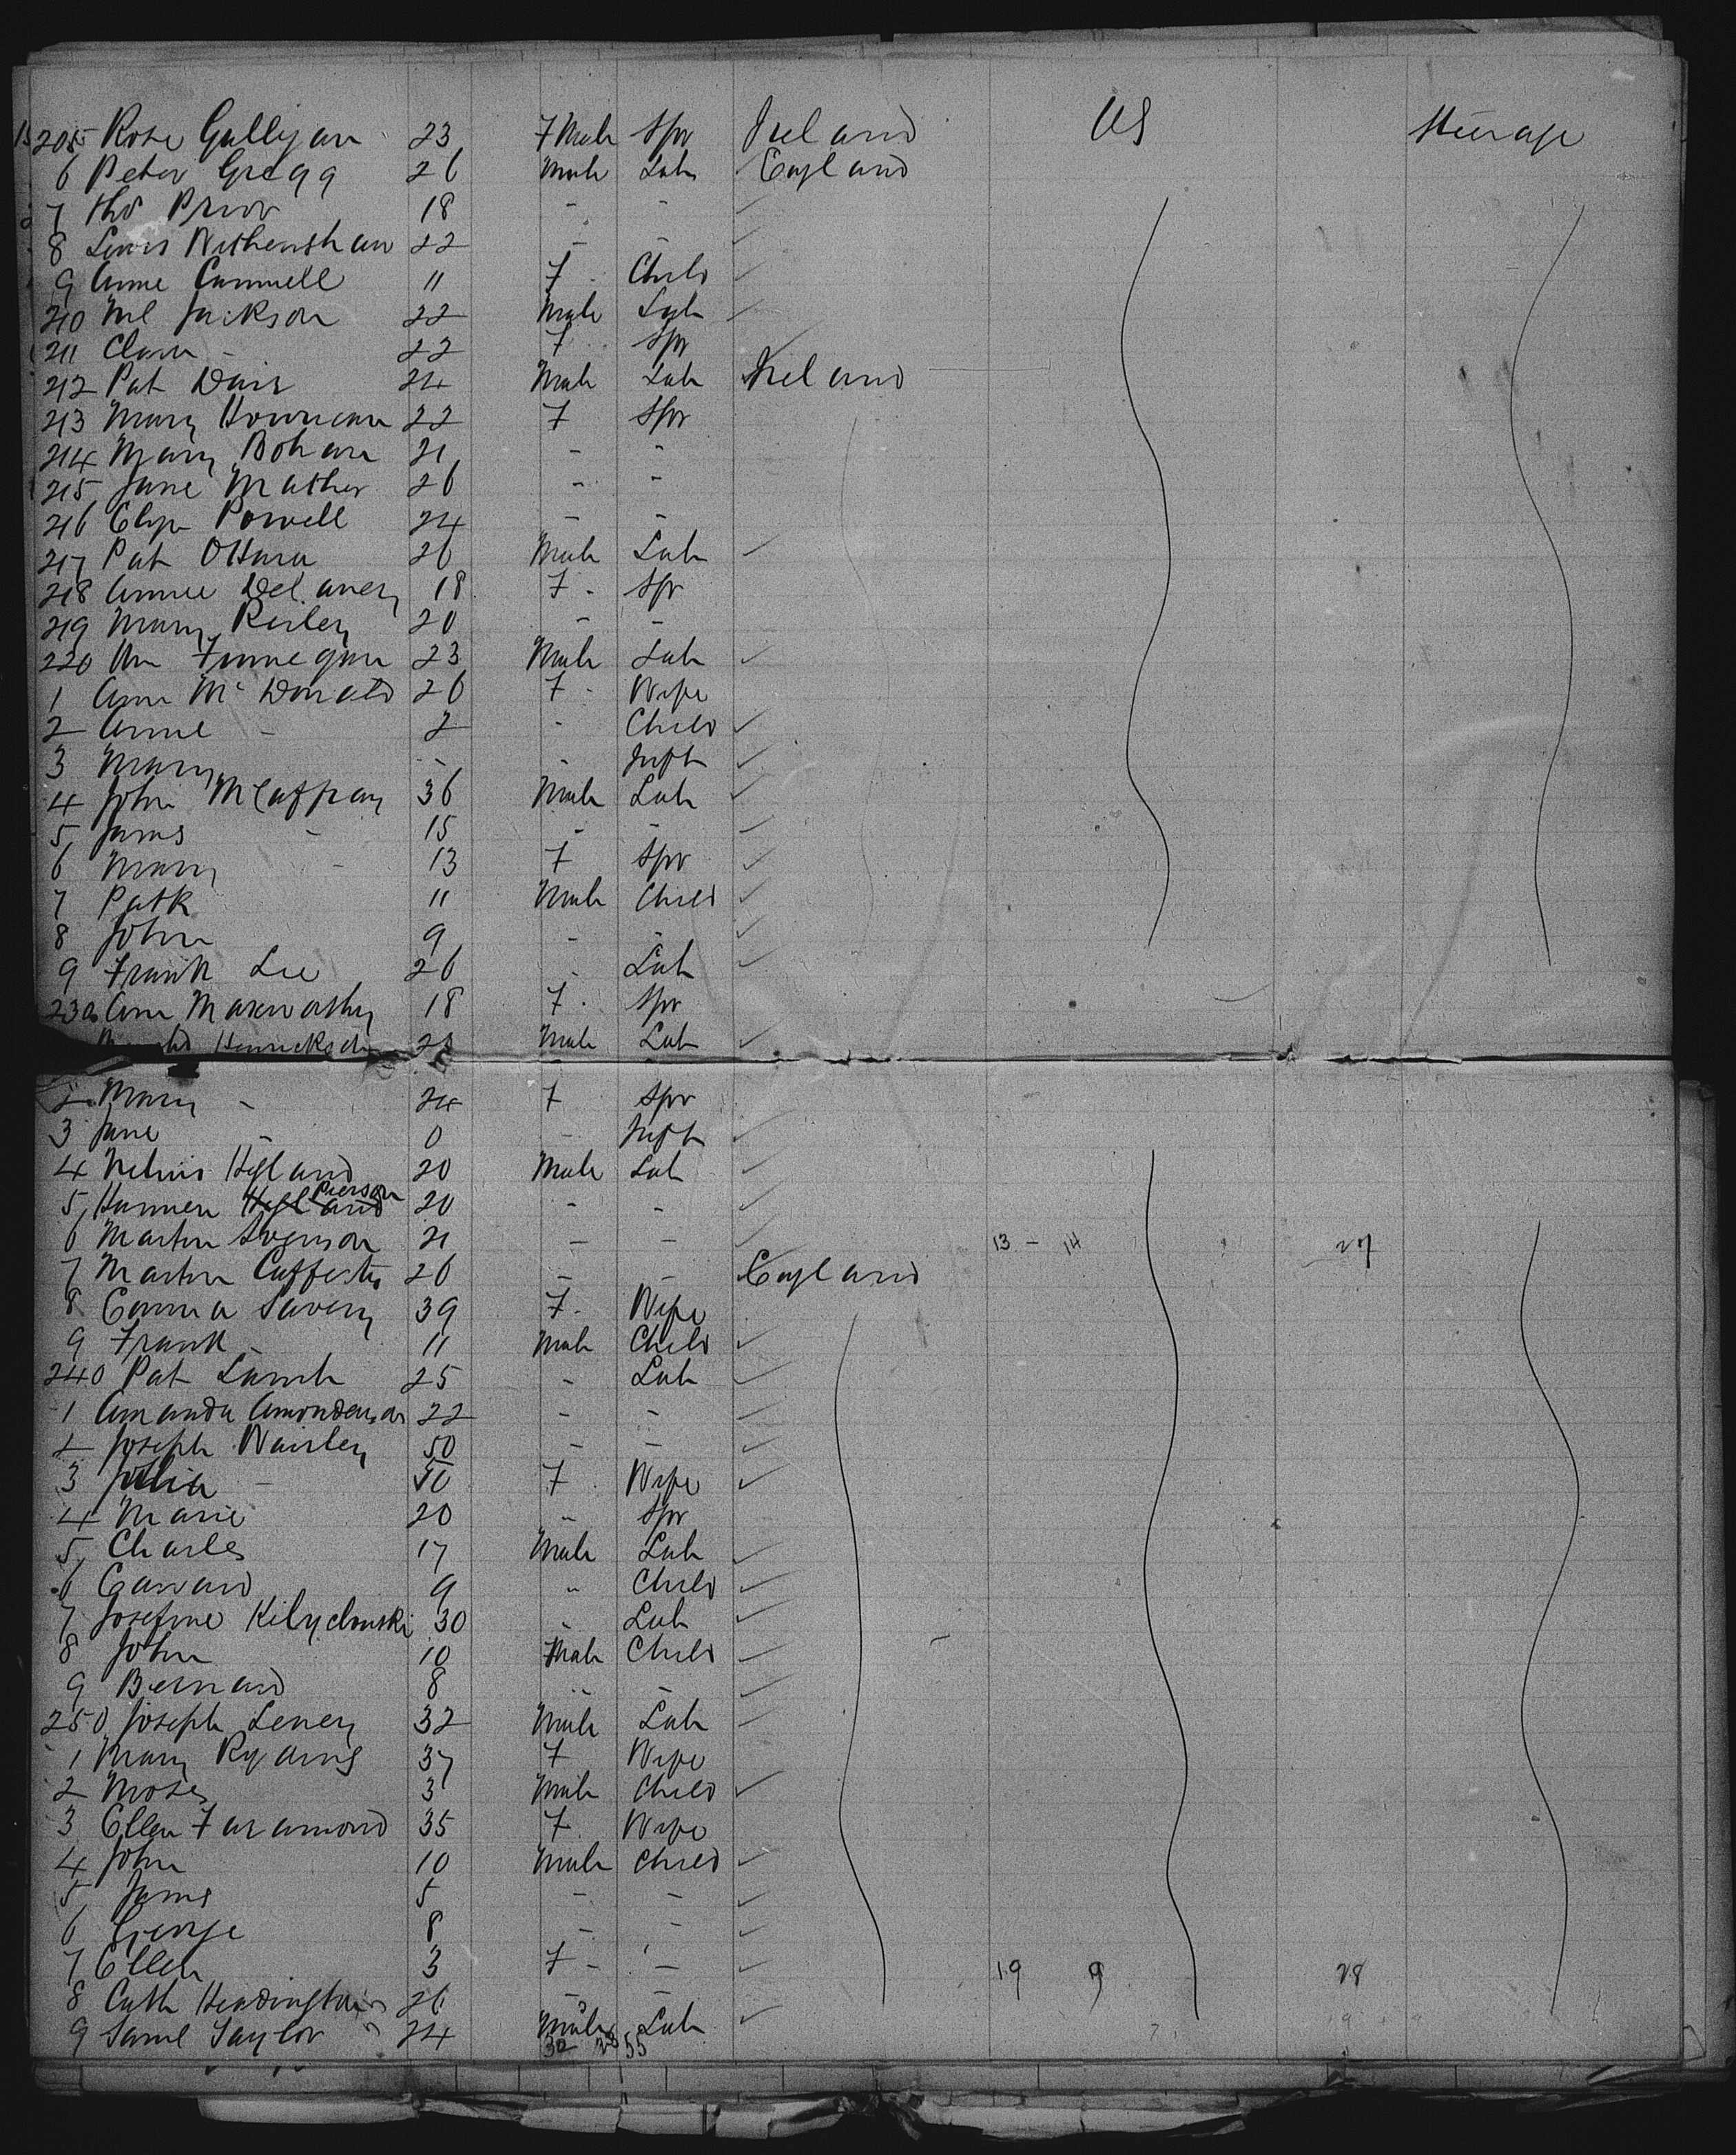 205 Rose Galligan 23 F Male Spr Ireland US Steerage
6 Peter Gregg 26 Male Lab England
7 Tho Prior 18 - -
8 Lewis Withenshaw 22 - -
9 Anne Cammell 11 F - Child
210 Ml Jackson 22 Male Lab
211 Clara - 22 F Spr
212 Pat 24 Male Lab Ireland
213 Mary 22 F Spr
214 Mary Bohan 21 - -
215 Jane Mather 26 - -
216 Powell 24 - -
217 Pat OHara 26 Male Lab
218 Annie Delaney 18 F - Spr
219 Mary Reiley 20 - -
220 Finnegan 23 Male Lab
1 Ann Mc Donald 26 F - Wife
2 Anne - 2 - Child
3 Mary - - Inft
4 John McCaffray 36 Male Lab
5 James - 15 - -
6 Mary - 13 F Spr
7 Patk 11 Male Child
8 John 9 - -
9 Frank Lee 26 - Lab
230 Ann Maxworthy 18 F - Spr
Male Lab
2 Mary - 24 F Spr
3 Jane - 0 - Inft
4 Hyland 20 Male Lab
5 Pierson 20 - -
6 Martin Svenson 21 - - 13 - 14 27
7 Martin 26 - - England
8 Emma Savery 39 F - Wife
9 Frank - 11 Male Child
240 Pat Lamb 25 - Lab
1 Amanda Amondensen 22 - -
2 Joseph 50 - -
3 Julia - 50 F - Wife
4 Marie 20 - Spr
5 Charles 17 Male Lab
6 9 " Child
7 Josefine 30 - Lab
8 John 10 Male Child
9 Bernard 8 - -
250 Joseph Leney 32 Male Lab
1 Mary 37 F Wife
2 Moses 3 Male Child
3 Ellen Faramond 35 F Wife
4 John 10 Male Child
5 James 5 - -
6 George 8 - -
7 Ellen 3 F - - 19 9 28
8 Cath 26 - -
9 Saml Taylor 24 Male Lab
32 28 55